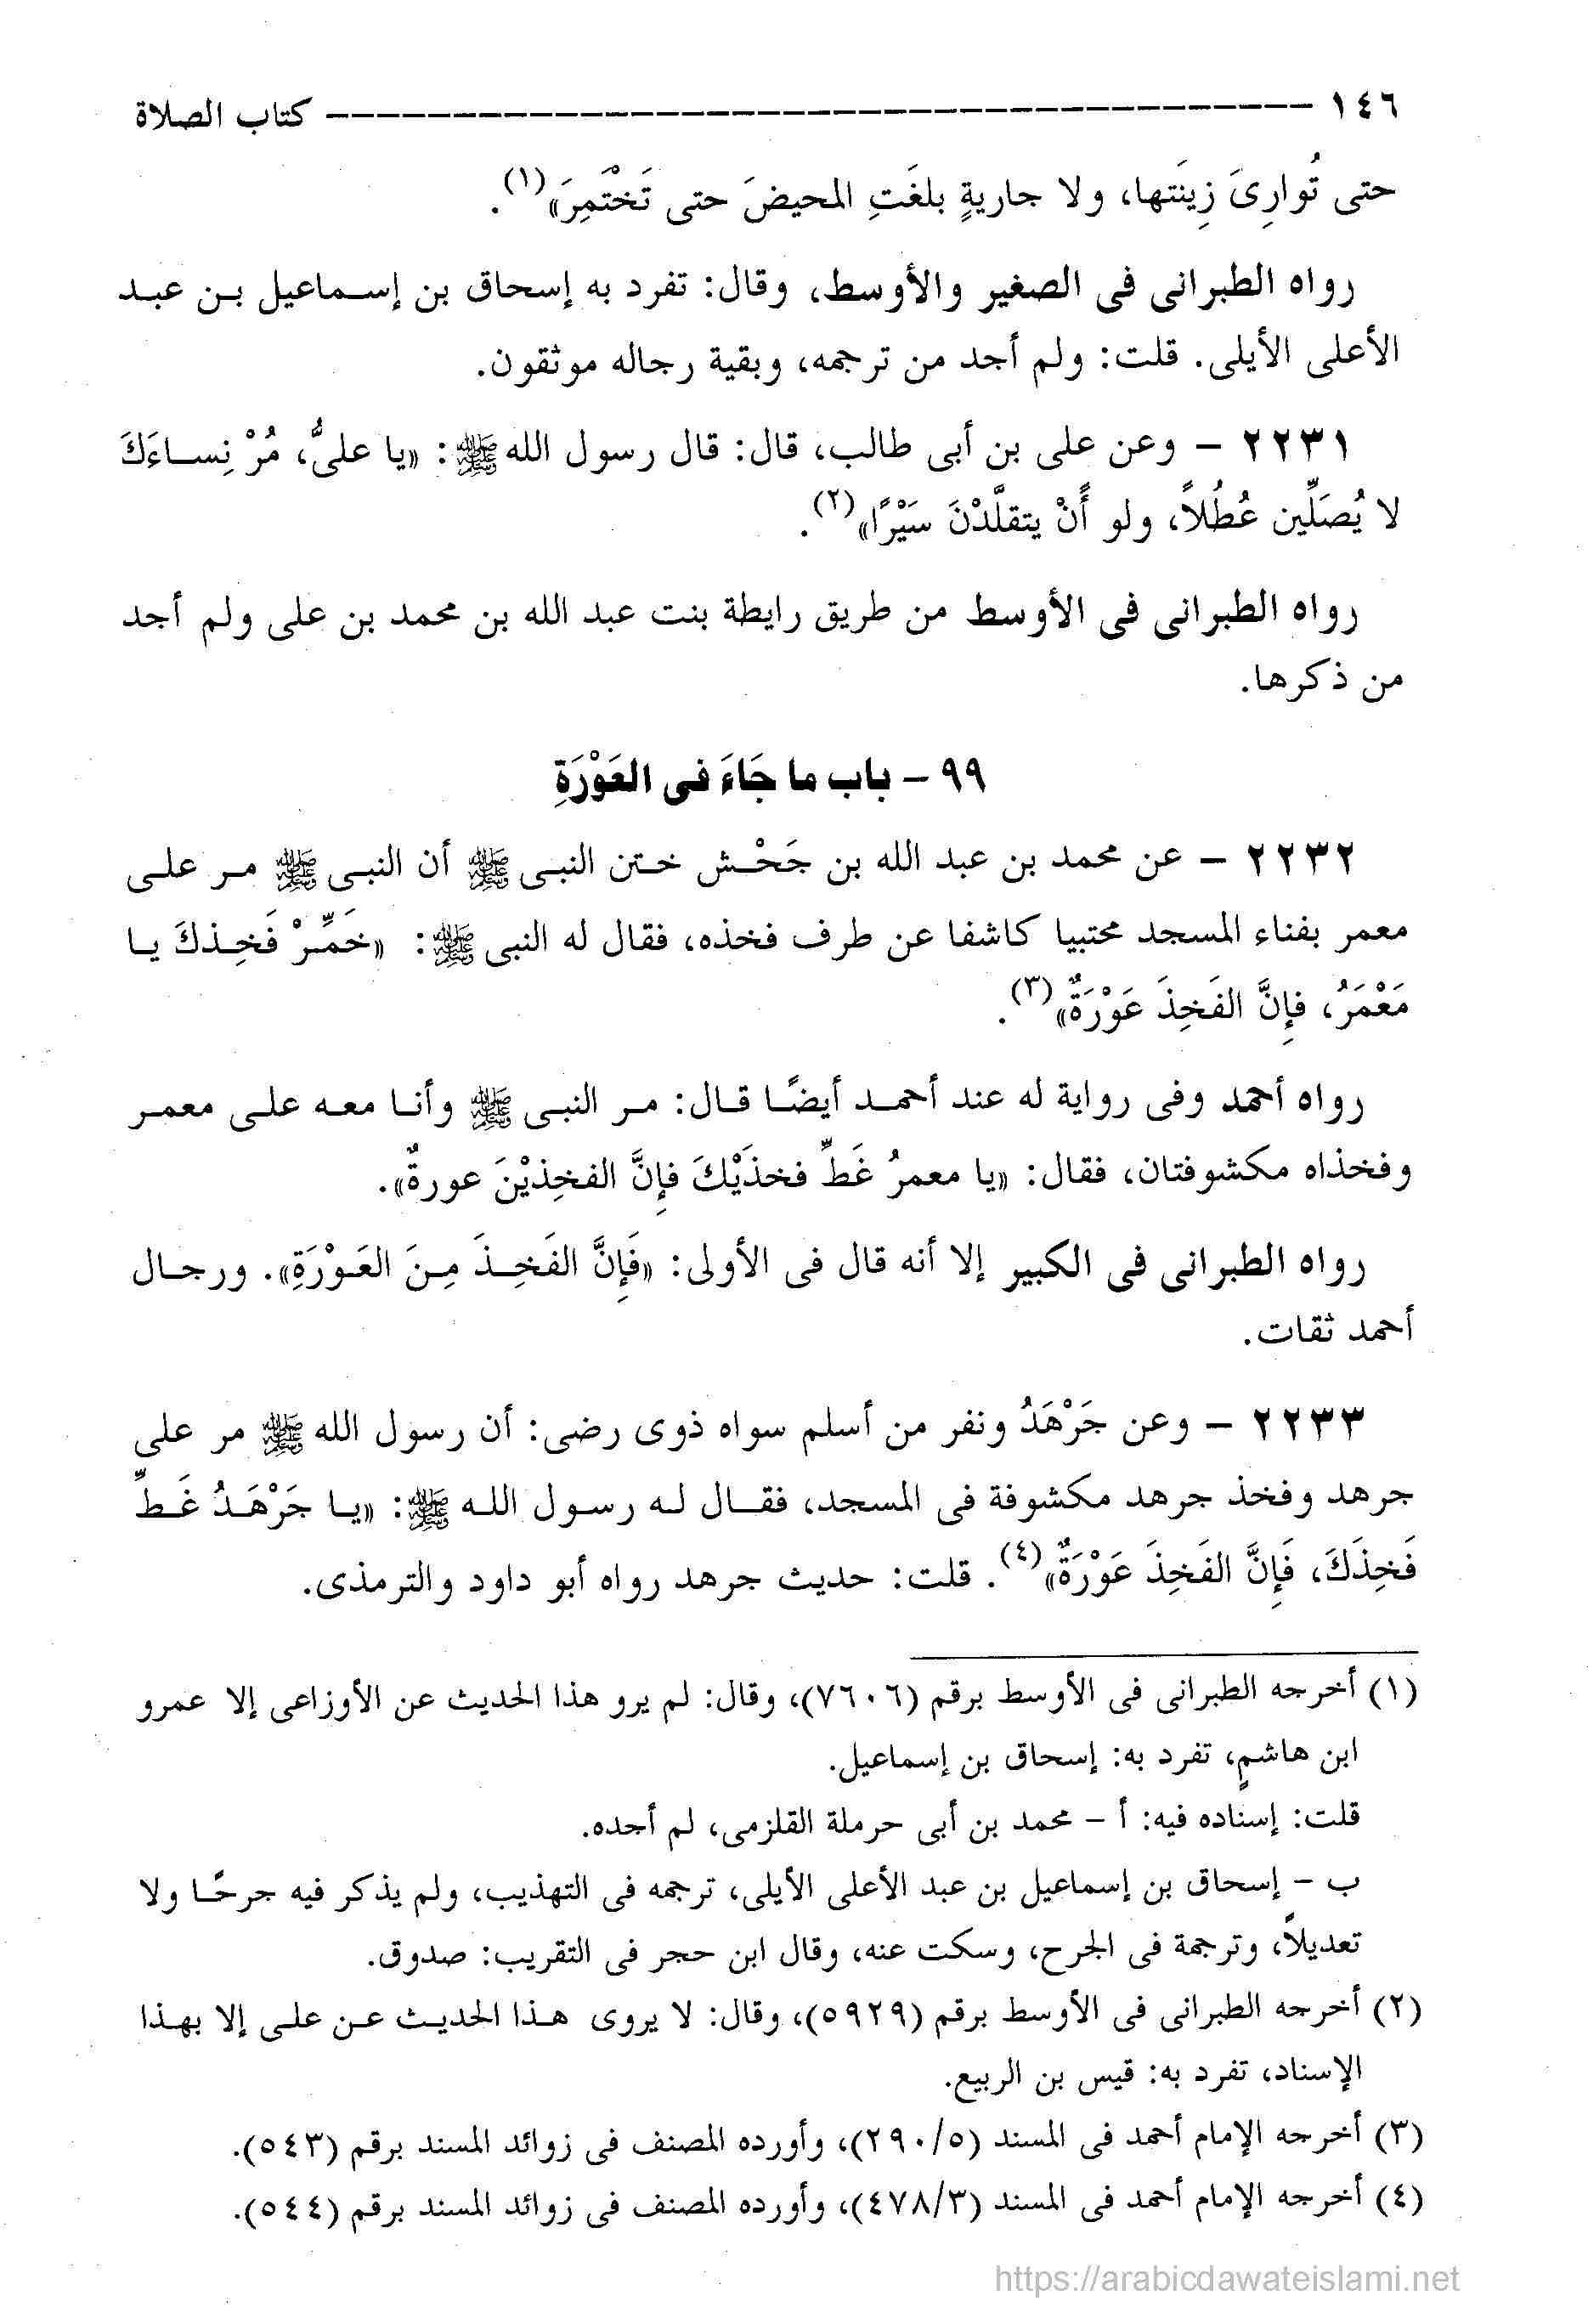 ١٤٦ ـــــــــــــــــــــــــــــــــــــــــــــــــ كتاب الصلاة
حتى تُوارِىَ زِينَتها، ولا جاريةٍ بلغَتِ المحيضَ حتى تَخْتَمِرَ»(١).
رواه الطبرانى فى الصغير والأوسط، وقال: تفرد به إسحاق بن إسماعيل بن عبد
الأعلى الأيلى. قلت: ولم أجد من ترجمه، وبقية رجاله موثقون.
٢٢٣١ – وعن على بن أبى طالب، قال: قال رسول الله ﷺ: «يا علىُّ، مُرْ نِساءَكَ
لا يُصَلِّين عُطُلاً، ولو أَنْ يتقلَّدْنَ سَيْرًا»(٢).
رواه الطبرانى فى الأوسط من طريق رايطة بنت عبد الله بن محمد بن على ولم أجد
من ذكرها.
٩٩ – باب ما جَاءَ فى العَوْرَةِ
٢٢٣٢ – عن محمد بن عبد الله بن جَحْش ختن النبى ﷺ أن النبى ﷺ مر على
معمر بفناء المسجد محتبيا كاشفا عن طرف فخذه، فقال له النبى ﷺ: «خَمِّرْ فَخِذكَ يا
مَعْمَرُ، فإِنَّ الفَخِذَ عَوْرَةٌ»(٣).
رواه أحمد وفى رواية له عند أحمد أيضًا قال: مر النبى ﷺ وأنا معه على معمر
وفخذاه مكشوفتان، فقال: «يا معمرُ غَطِّ فخذَيْكَ فإِنَّ الفخِذيْنَ عورةٌ».
رواه الطبرانى فى الكبير إلا أنه قال فى الأولى: «فَإِنَّ الفَخِذَ مِنَ العَوْرَةِ». ورجال
أحمد ثقات.
٢٢٣٣ – وعن جَرْهَدُ ونفر من أسلم سواه ذوى رضى: أن رسول الله ﷺ مر على
جرهد وفخذ جرهد مكشوفة فى المسجد، فقال له رسول الله ﷺ: «يا جَرْهَدُ غَطِّ
فَخِذَكَ، فَإِنَّ الفَخِذَ عَوْرَةٌ»(٤). قلت: حديث جرهد رواه أبو داود والترمذى.
(١) أخرجه الطبرانى فى الأوسط برقم (٧٦٠٦)، وقال: لم يرو هذا الحديث عن الأوزاعى إلا عمرو
ابن هاشمٍ، تفرد به: إسحاق بن إسماعيل.
قلت: إسناده فيه: أ – محمد بن أبى حرملة القلزمى، لم أجده.
ب – إسحاق بن إسماعيل بن عبد الأعلى الأيلى، ترجمه فى التهذيب، ولم يذكر فيه جرحًا ولا
تعديلاً، وترجمة فى الجرح، وسكت عنه، وقال ابن حجر فى التقريب: صدوق.
(٢) أخرجه الطبرانى فى الأوسط برقم (٥٩٢٩)، وقال: لا يروى هذا الحديث عن على إلا بهذا
الإسناد، تفرد به: قيس بن الربيع.
(٣) أخرجه الإمام أحمد فى المسند (٥/٢٩٠)، وأورده المصنف فى زوائد المسند برقم (٥٤٣).
(٤) أخرجه الإمام أحمد فى المسند (٣/٤٧٨)، وأورده المصنف فى زوائد المسند برقم (٥٤٤).
https://arabicdawateislami.net